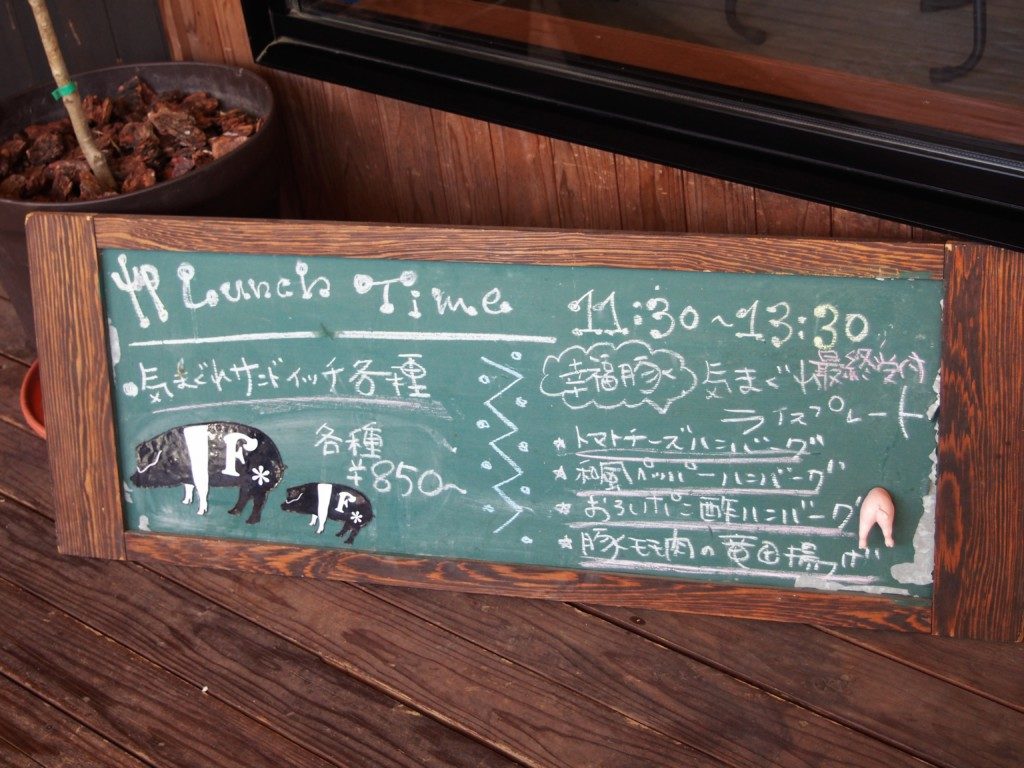 Lunch Time
11:30~13:30
最終受付
・気まぐれサンドイッチ各種
各種
¥850~
F*
F*
幸福豚
気まぐれ
ライスプレート
☆トマトチーズハンバーグ
☆和風ペッパーハンバーグ
☆おろしポン酢ハンバーグ
☆豚モモ肉の竜田揚げ